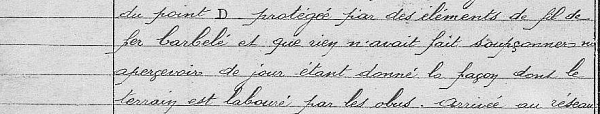 du point D protégée par des éléments de fil de
fer barbelé et que rien n'avait fait soupçonner ni
apercevoir de jour étant donné la façon dont le
terrain est labouré par les obus. Arrivée au réseau